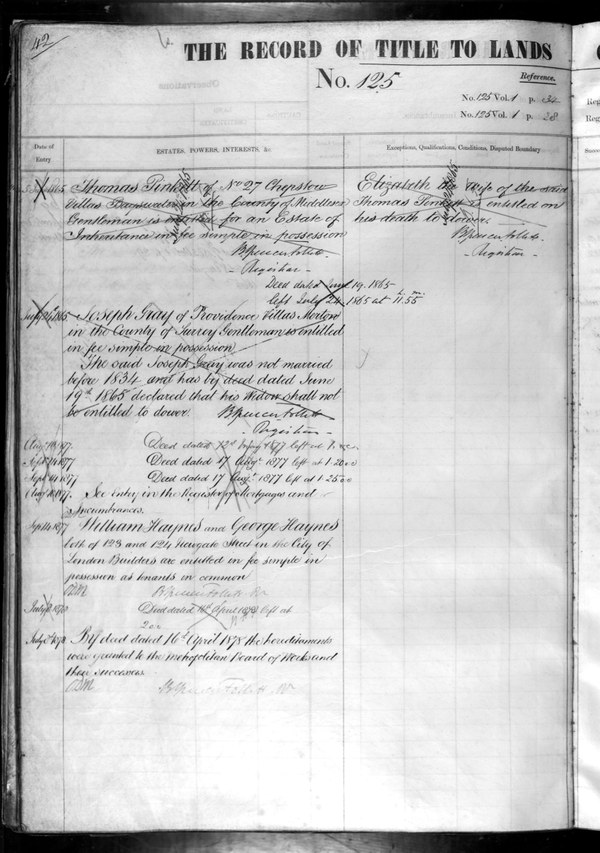 42
THE RECORD OF TITLE TO LANDS
No. 125
Reference.
No. 125 Vol. 1 p. 34
No. 125 Vol. 1 p. 28
Date of Entry
ESTATES, POWERS, INTERESTS, &c.
Exceptions, Qualifications, Conditions, Disputed Boundary
1865 Thomas of No 27 Chepstow
Villas Bayswater in the County of Middlesex
Gentleman is entitled for an Estate of
Inheritance in fee simple in possession
BSpencer Follett
- Registrar -
Elizabeth the wife of the said
Thomas is entitled on
his death to dower.
BSpencer Follett
- Registrar -
Deed dated June 19. 1865
left July 24. 1865 at 11.55
July 24 1865 Joseph Gray of Providence Villas Morton
in the County of Surrey Gentleman is entitled
in fee simple in possession
The said Joseph Gray was not married
before 1834 and has by deed dated June
19th 1865 declared that his widow shall not
be entitled to dower. BSpencer Follett
- Registrar -
1877 Deed dated 1877 left at
1877 Deed dated 17 Augt. 1877 left at 1.20
Sept 14 1877 Deed dated 17 Augt. 1877 left at 1.25
1877 See entry in the Register of Mortgages and
Incumbrances.
Sept 14 1877 William Haynes and George Haynes
both of 123 and 124 Newgate Street in the City of
London Builders are entitled in fee simple in
possession as tenants in common
BSpencer Follett
July 1878 Deed dated 16th April 1878 left at
July 1878 By deed dated 16th April 1878 the hereditaments
were granted to the Metropolitan Board of Works and
their successors.
BSpencer Follett